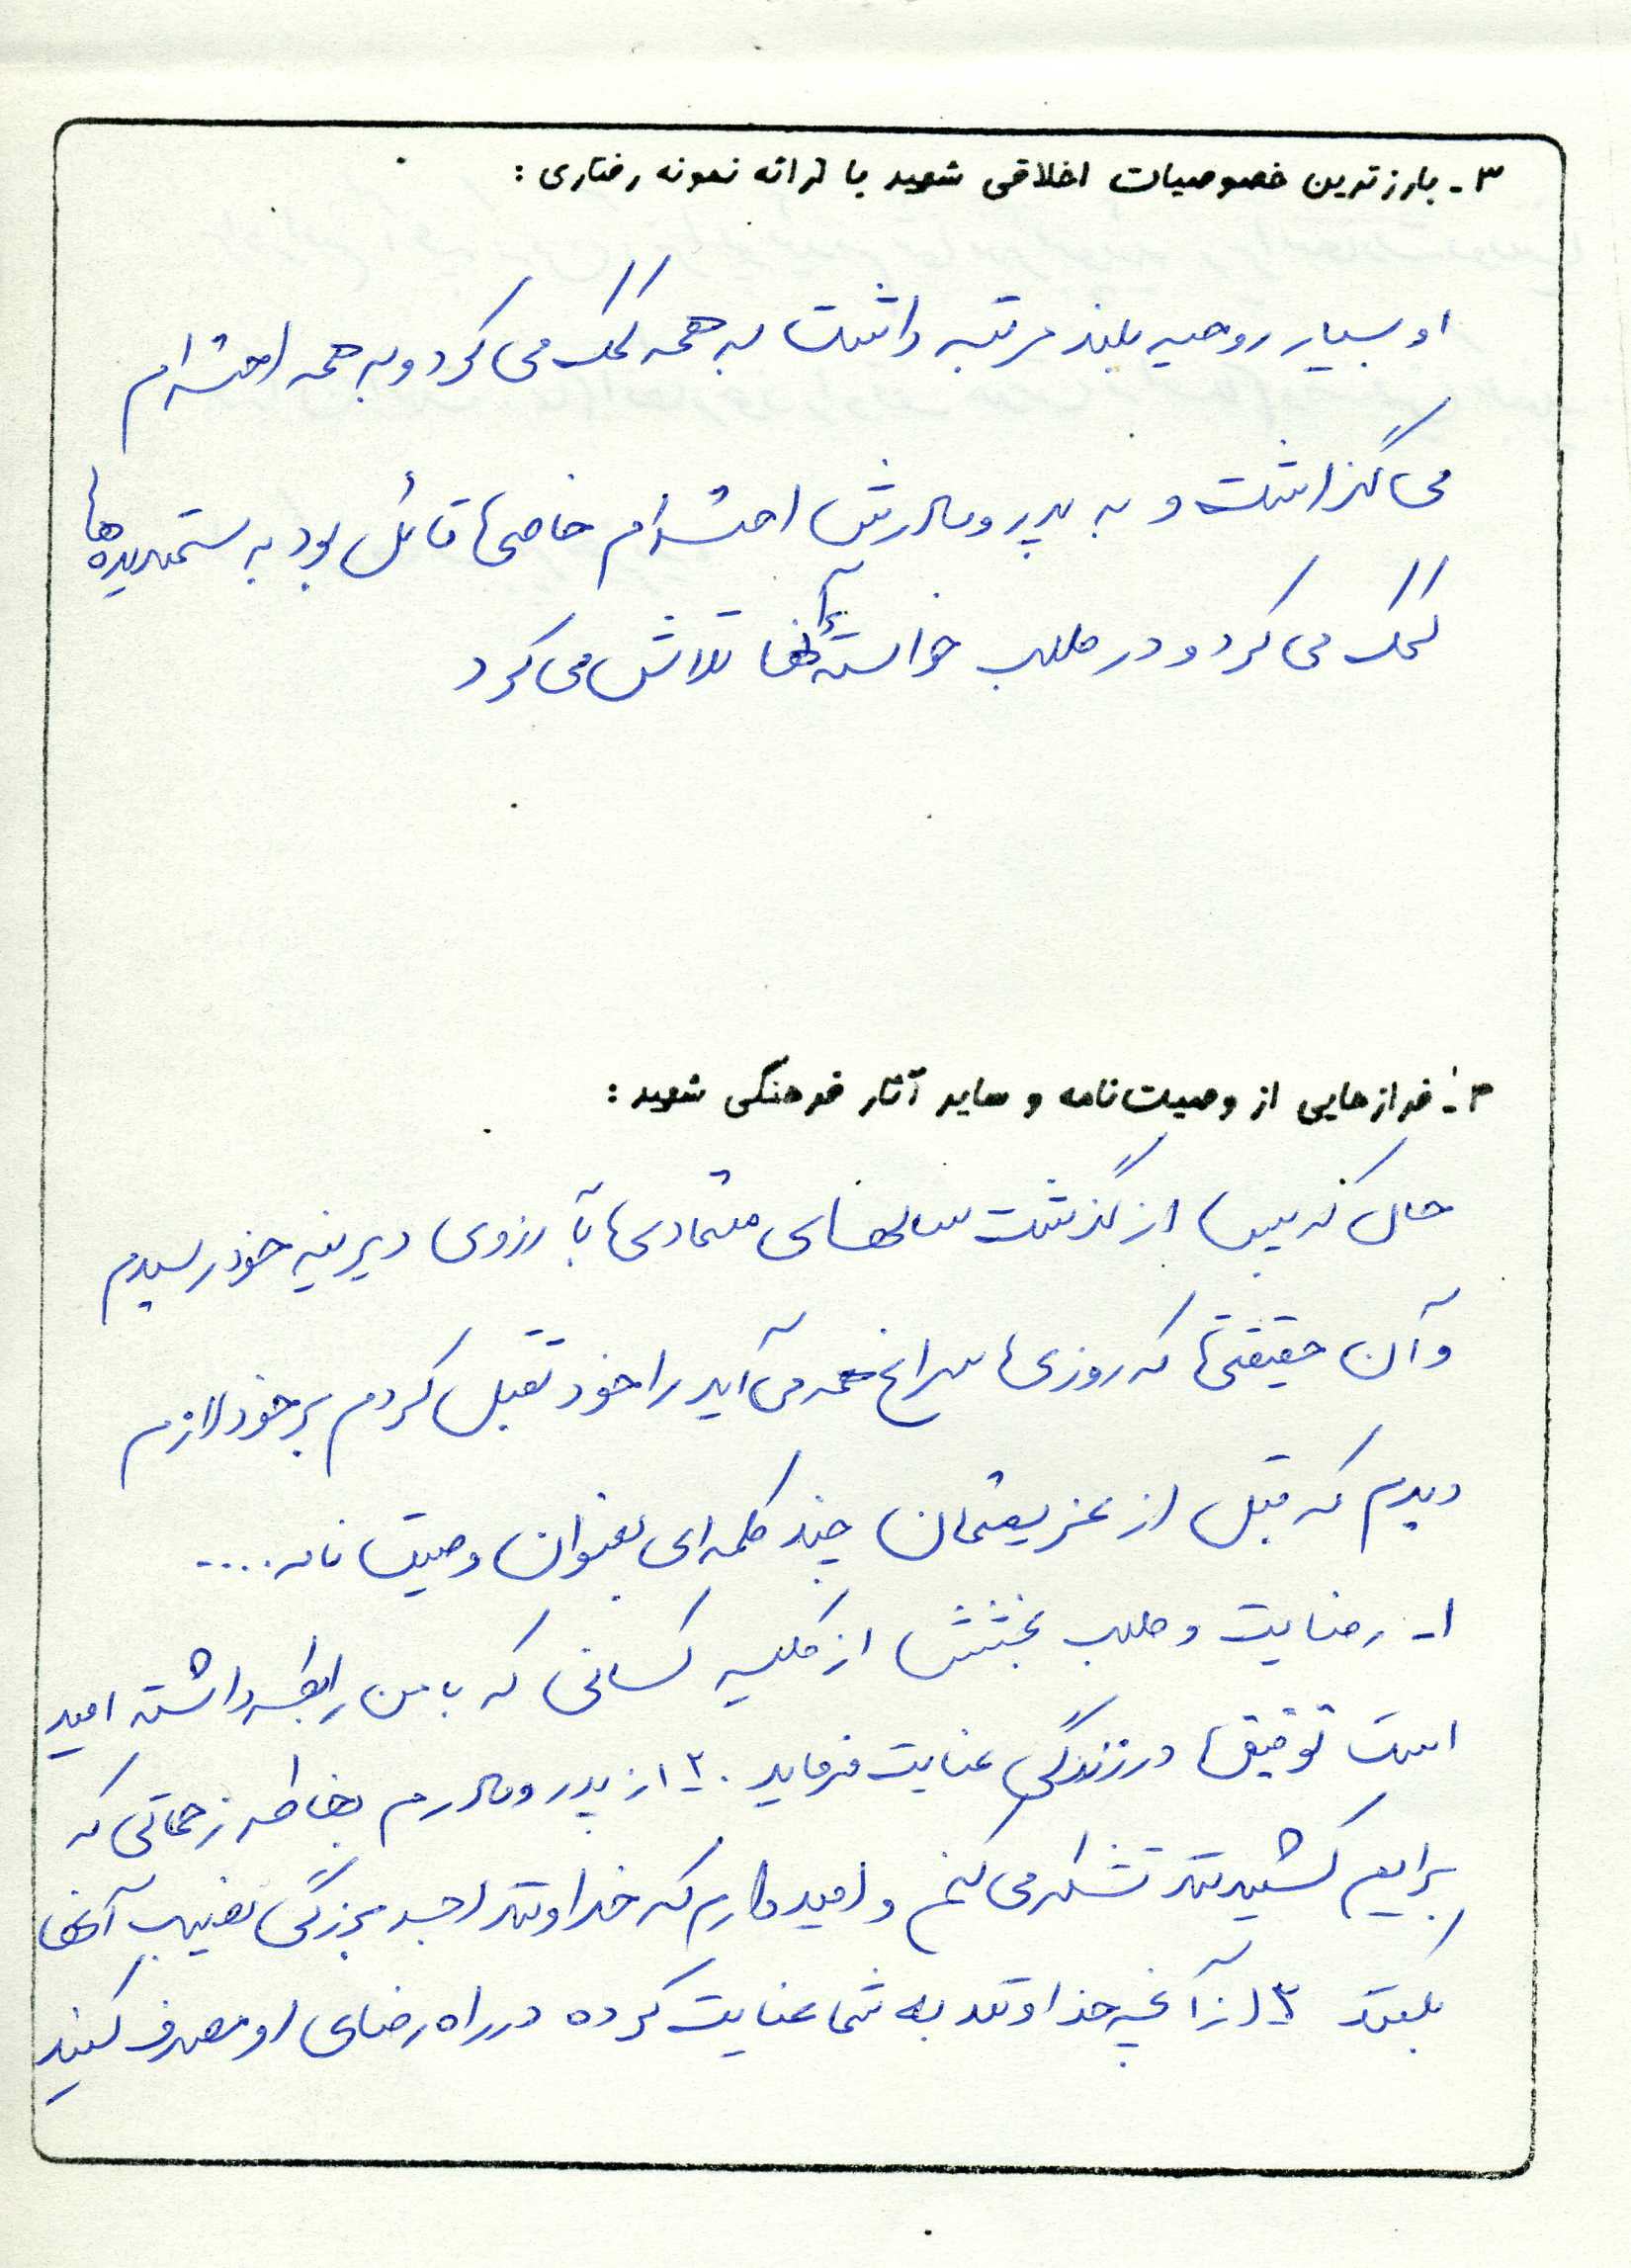 ۳- بارزترین خصوصیات اخلاقی شهید با ارائه نمونه رفتاری :
او بسیار روحیه بلند مرتبه داشت به همه کمک می کرد و به همه احترام
می گذاشت و به پدر و مادرش احترام خاصی قائل بود به ستمدیده ها
کمک می کرد و در طلب خواسته آنها تلاش می کرد
۴- فرازهایی از وصیت‌نامه و سایر آثار فرهنگی شهید :
حال که پس از گذشت سالهای متمادی بآرزوی دیرینه خود رسیدم
و آن حقیقتی که روزی سراغ همه می آید را خود تقبل کردم بر خود لازم
دیدم که قبل از عزیمتمان چند کلمه ای بعنوان وصیت نامه ....
۱- رضایت و طلب بخشش از کلیه کسانی که با من رابطه داشته امید
است توفیق در زندگی عنایت فرماید . ۲- از پدر و مادرم بخاطر زحماتی که
برایم کشیدند تشکر می کنم و امیدوارم که خداوند اجر بزرگی نصیب آنها
بکند ۳- از آنچه خداوند به شما عنایت کرده در راه رضای او مصرف کنید